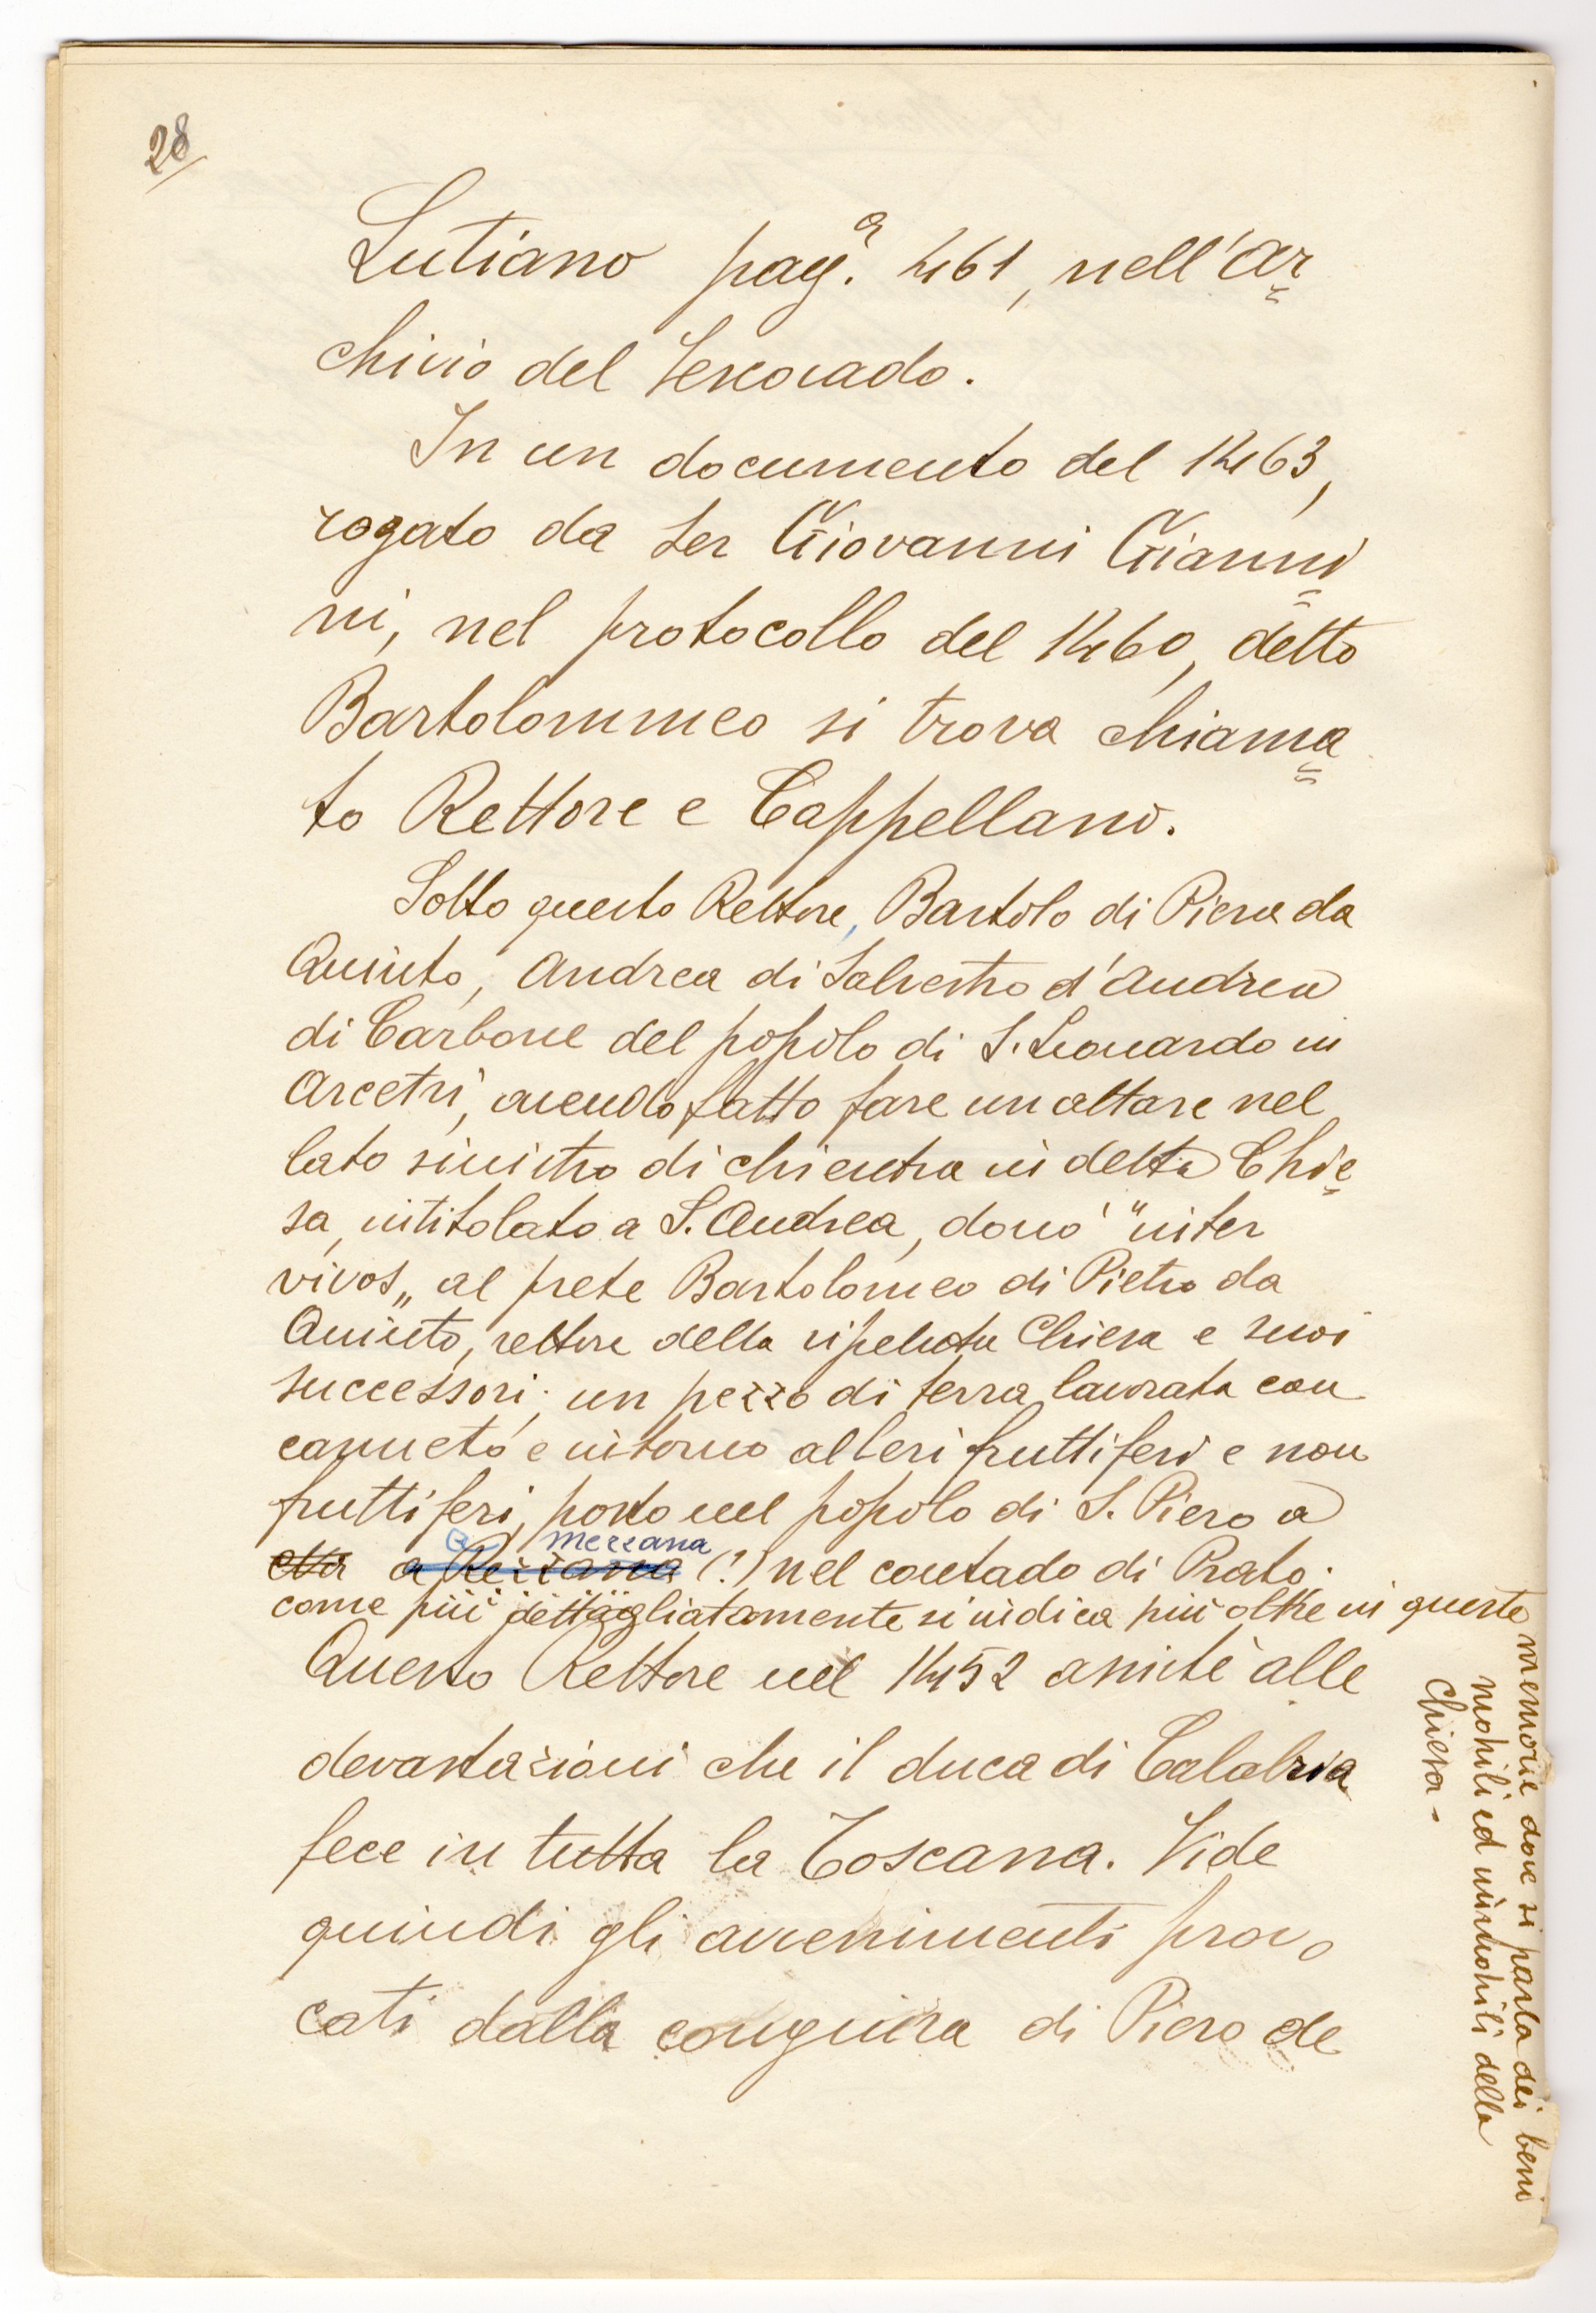 28
Lutiano pag.ª 461, nell'Ar
chivio del Vescovado.
In un documento del 1463,
rogato da Ser Giovanni Gianni
ni, nel protocollo del 1460, detto
Bartolommeo si trova chiama
to Rettore e Cappellano.
Sotto questo Rettore, Bartolo di Piero da
Quinto, Andrea di Salvestro d'Andrea
di Carbone del popolo di S. Leonardo in
Arcetri, avendo fatto fare un altare nel
lato sinistro di chi entra in detta Chie
sa, intitolato a S. Andrea, donò "inter
vivos„ al prete Bartolomeo di Pietro da
Quinto, rettore della ripetuta Chiesa e suoi
successori, un pezzo di terra lavorata con
canneto e intorno alberi fruttiferi e non
fruttiferi, posto nel popolo di S. Piero a
Mezzana
a Rezzana (?) nel contado di Prato.
come più dettagliatamente si indica più oltre in queste
memorie dove si parla dei beni
mobili ed immobili della
Chiesa -
Questo Rettore nel 1452 assistè alle
devastazioni che il duca di Calabria
fece in tutta la Toscana. Vide
quindi gli avvenimenti provo
cati dalla congiura di Piero de